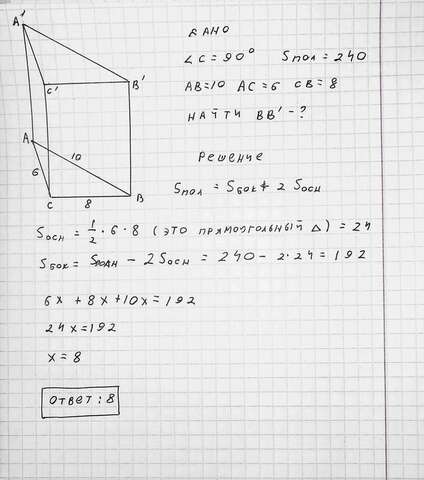 A'
C'
B'
A
10
6
C
8
B
ДАНО
∠C=90° Sпол=240
AB=10 AC=6 CB=8
НАЙТИ BB'-?
Решение
Sпол = Sбок + 2 Sосн
Sосн = 1/2 · 6 · 8 (это прямозгольный Δ) = 24
Sбок = Sполн - 2Sосн = 240 - 2·24 = 192
6x + 8x + 10x = 192
24x = 192
x = 8
ответ: 8